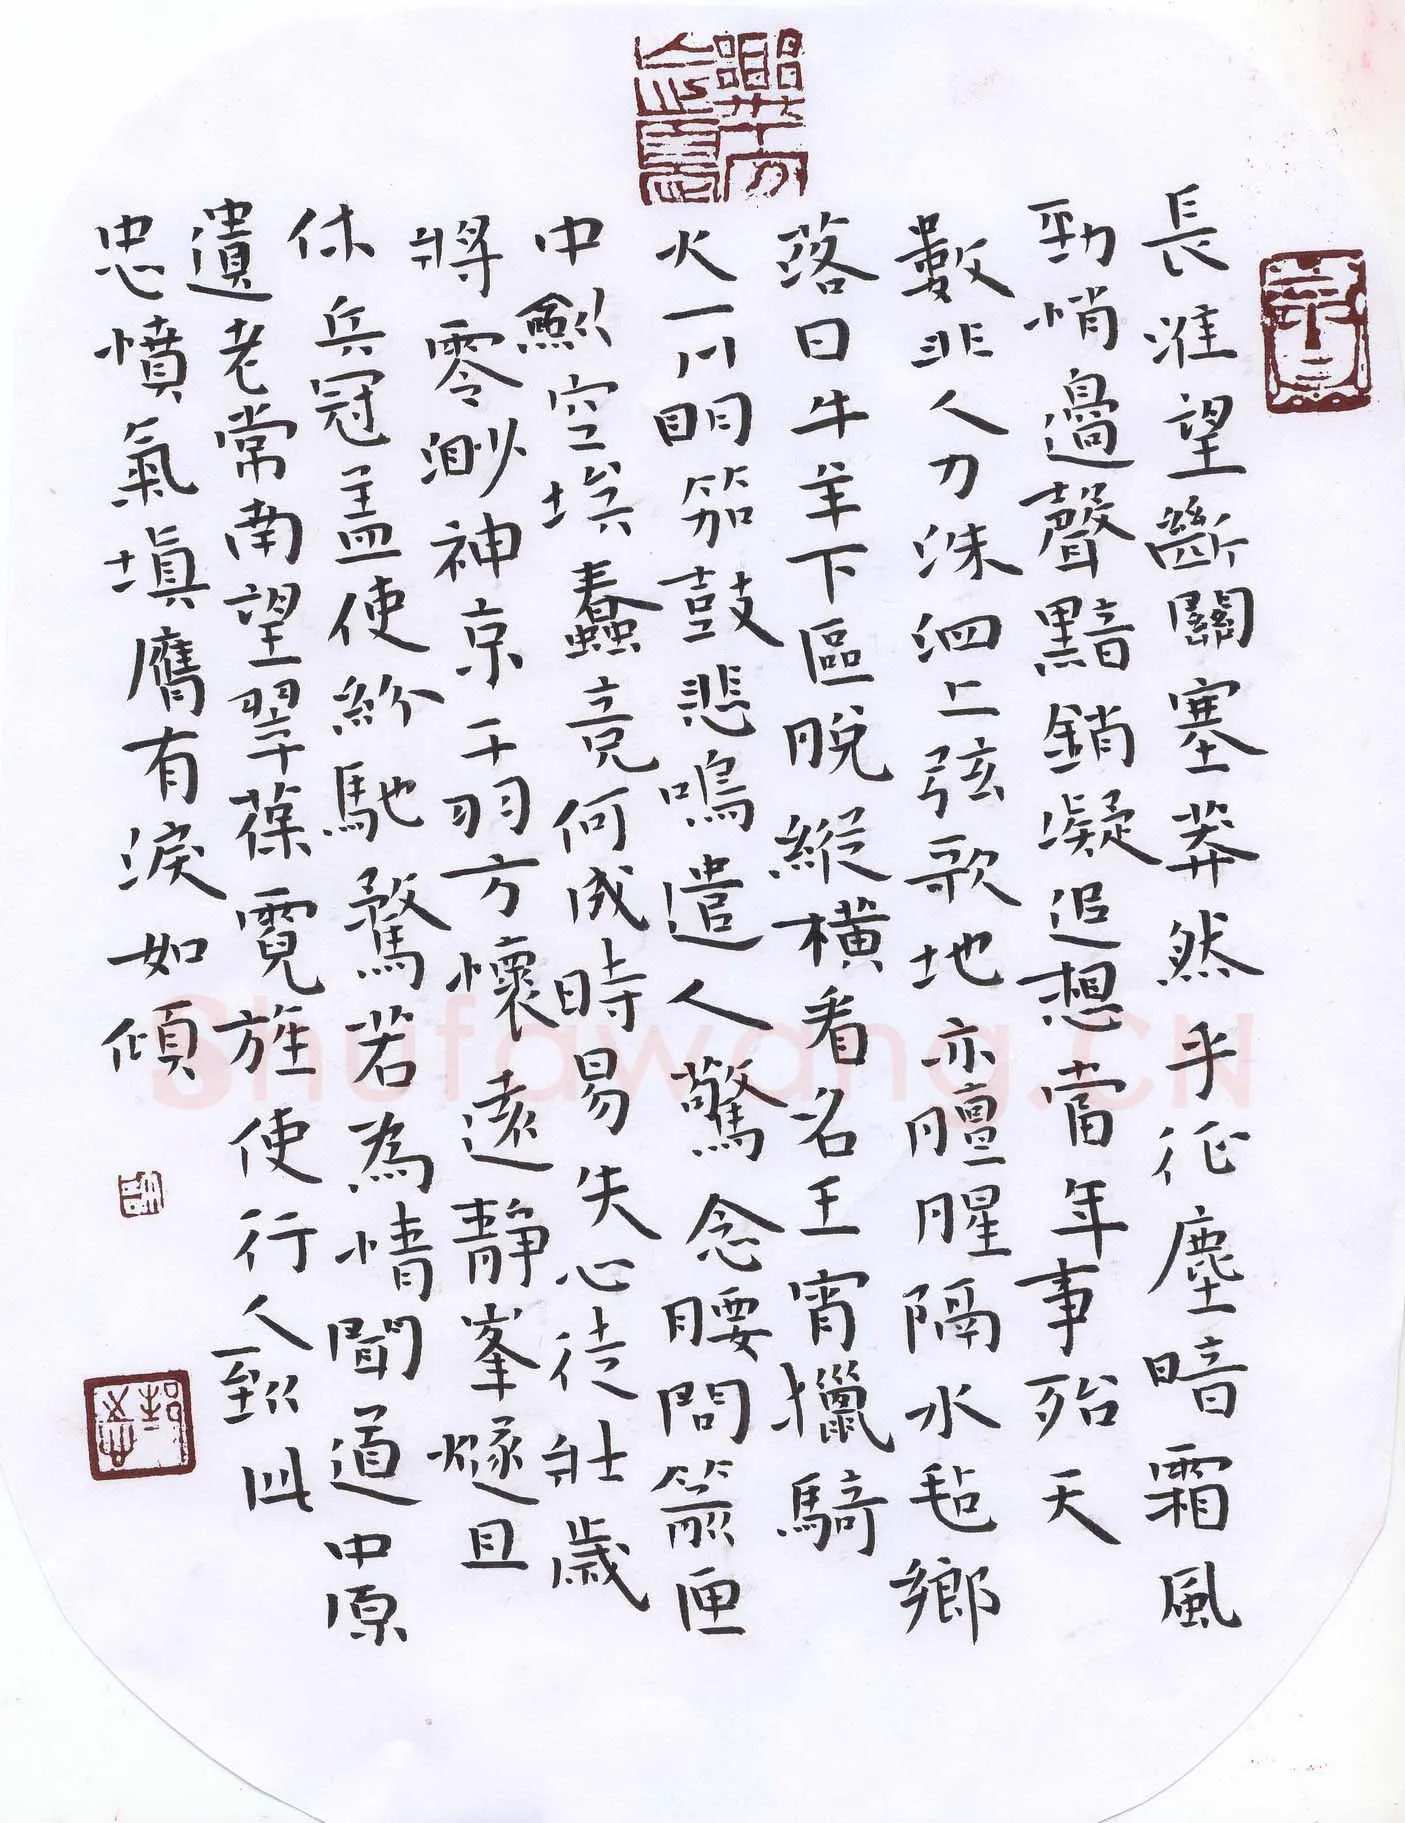 長淮望斷關塞莽然平征塵暗霜風
勁悄邊聲黯銷凝追想當年事殆天
數非人力洙泗上弦歌地亦膻腥隔水毡鄉
落日牛羊下區脫縱橫看名王宵獵騎
火一川明笳鼓悲鳴遣人驚念腰間箭匣
中劍空埃蠹竟何成時易失心徒壯歲
將零渺神京干羽方懷遠靜峯燧且
休兵冠盖使紛馳騖若為情聞道中原
遺老常南望翠葆霓旌使行人到此
忠憤氣填膺有淚如傾
Shufawang.CN